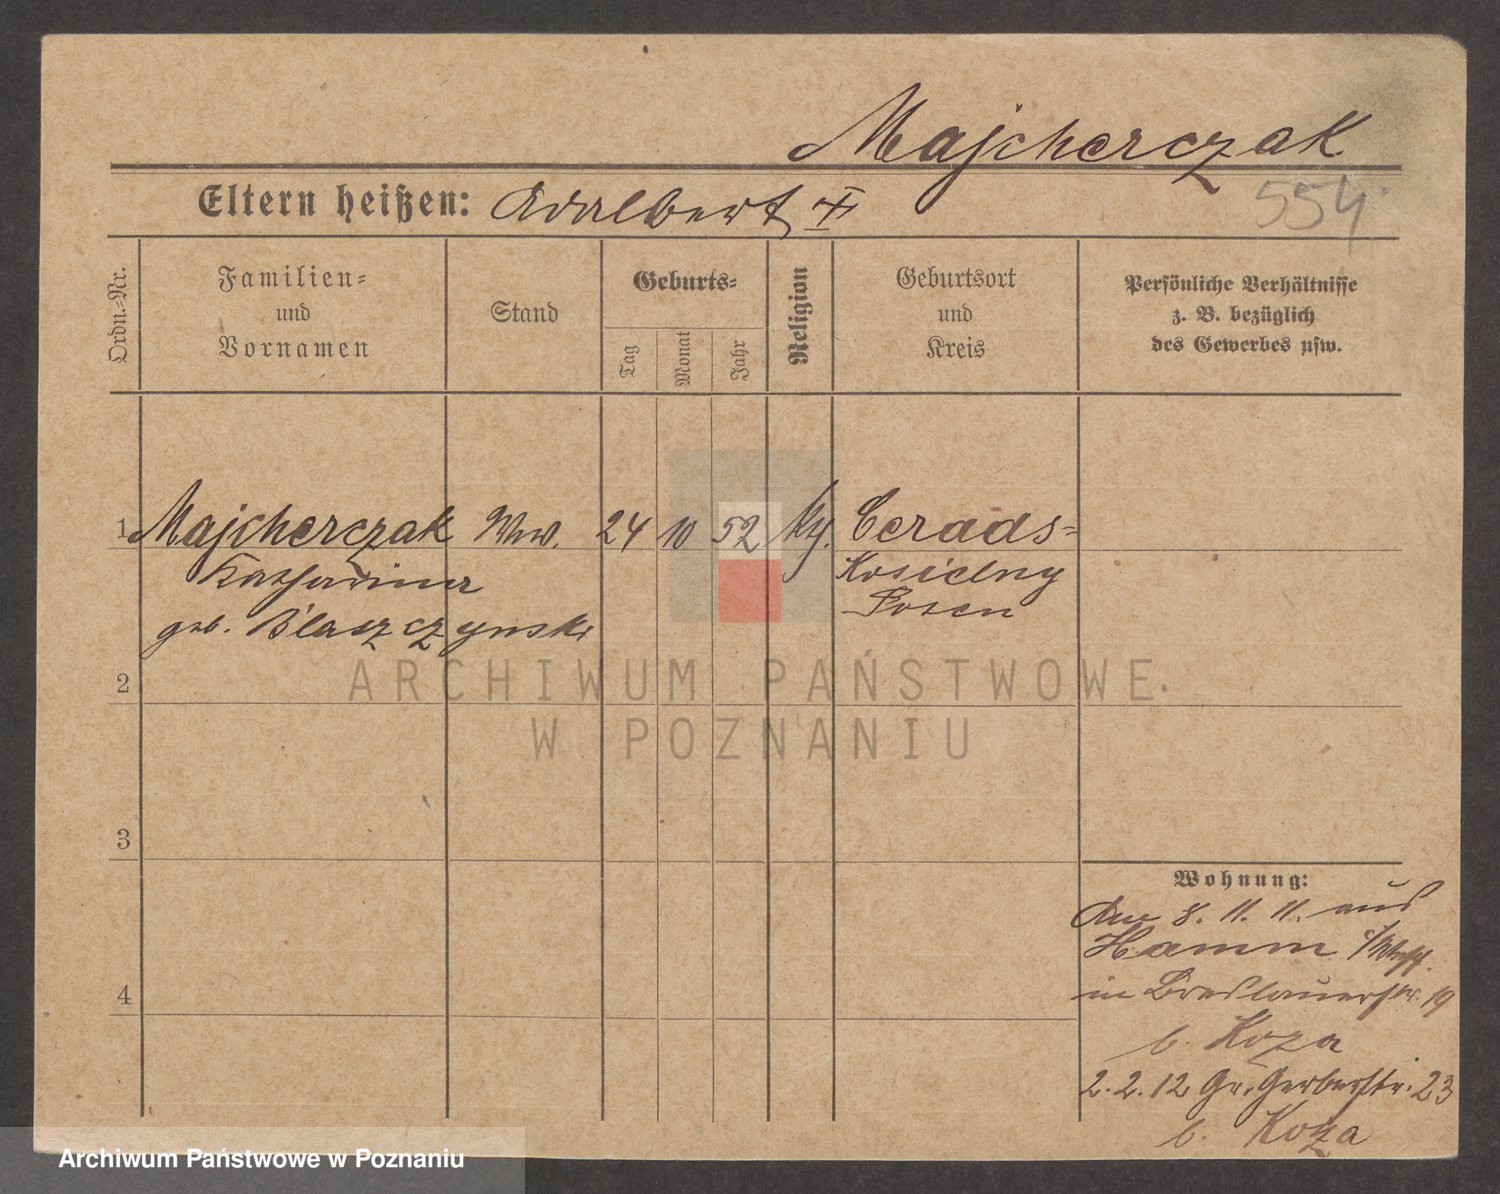 Majcherczak
554
Eltern heißen: Adalbert ☩
Ordn.-Nr.
Familien-
und
Vornamen
Stand
Geburts-
Tag
Monat
Jahr
Religion
Geburtsort
und
Kreis
Persönliche Verhältnisse
z. B. bezüglich
des Gewerbes usw.
1 Majcherczak Ww. 24 10 52 Cerads-
Katharina Kosielny
geb. Blaszczynski Posen
2
3
4
Wohnung:
8. 11. 11. aus
Hamm i/Westf.
in Breslauerstr. 19
b. Koza
2. 2. 12 Gr. Gerberstr. 23
b. Koza
ARCHIWUM PAŃSTWOWE
W POZNANIU
Archiwum Państwowe w Poznaniu